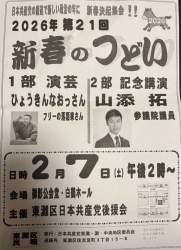 日本共産党の躍進で新しい政治の年に 新春決起集会!!
2026年第21回
新春のつどい
1部 演芸
2部 記念講演
ひょうきんなおっさん
フリーの落語家さん
山添 拓
参議院議員
日時 2月7日(土)午後2時~
会場 御影公会堂・白鶴ホール
主催 東灘区日本共産党後援会